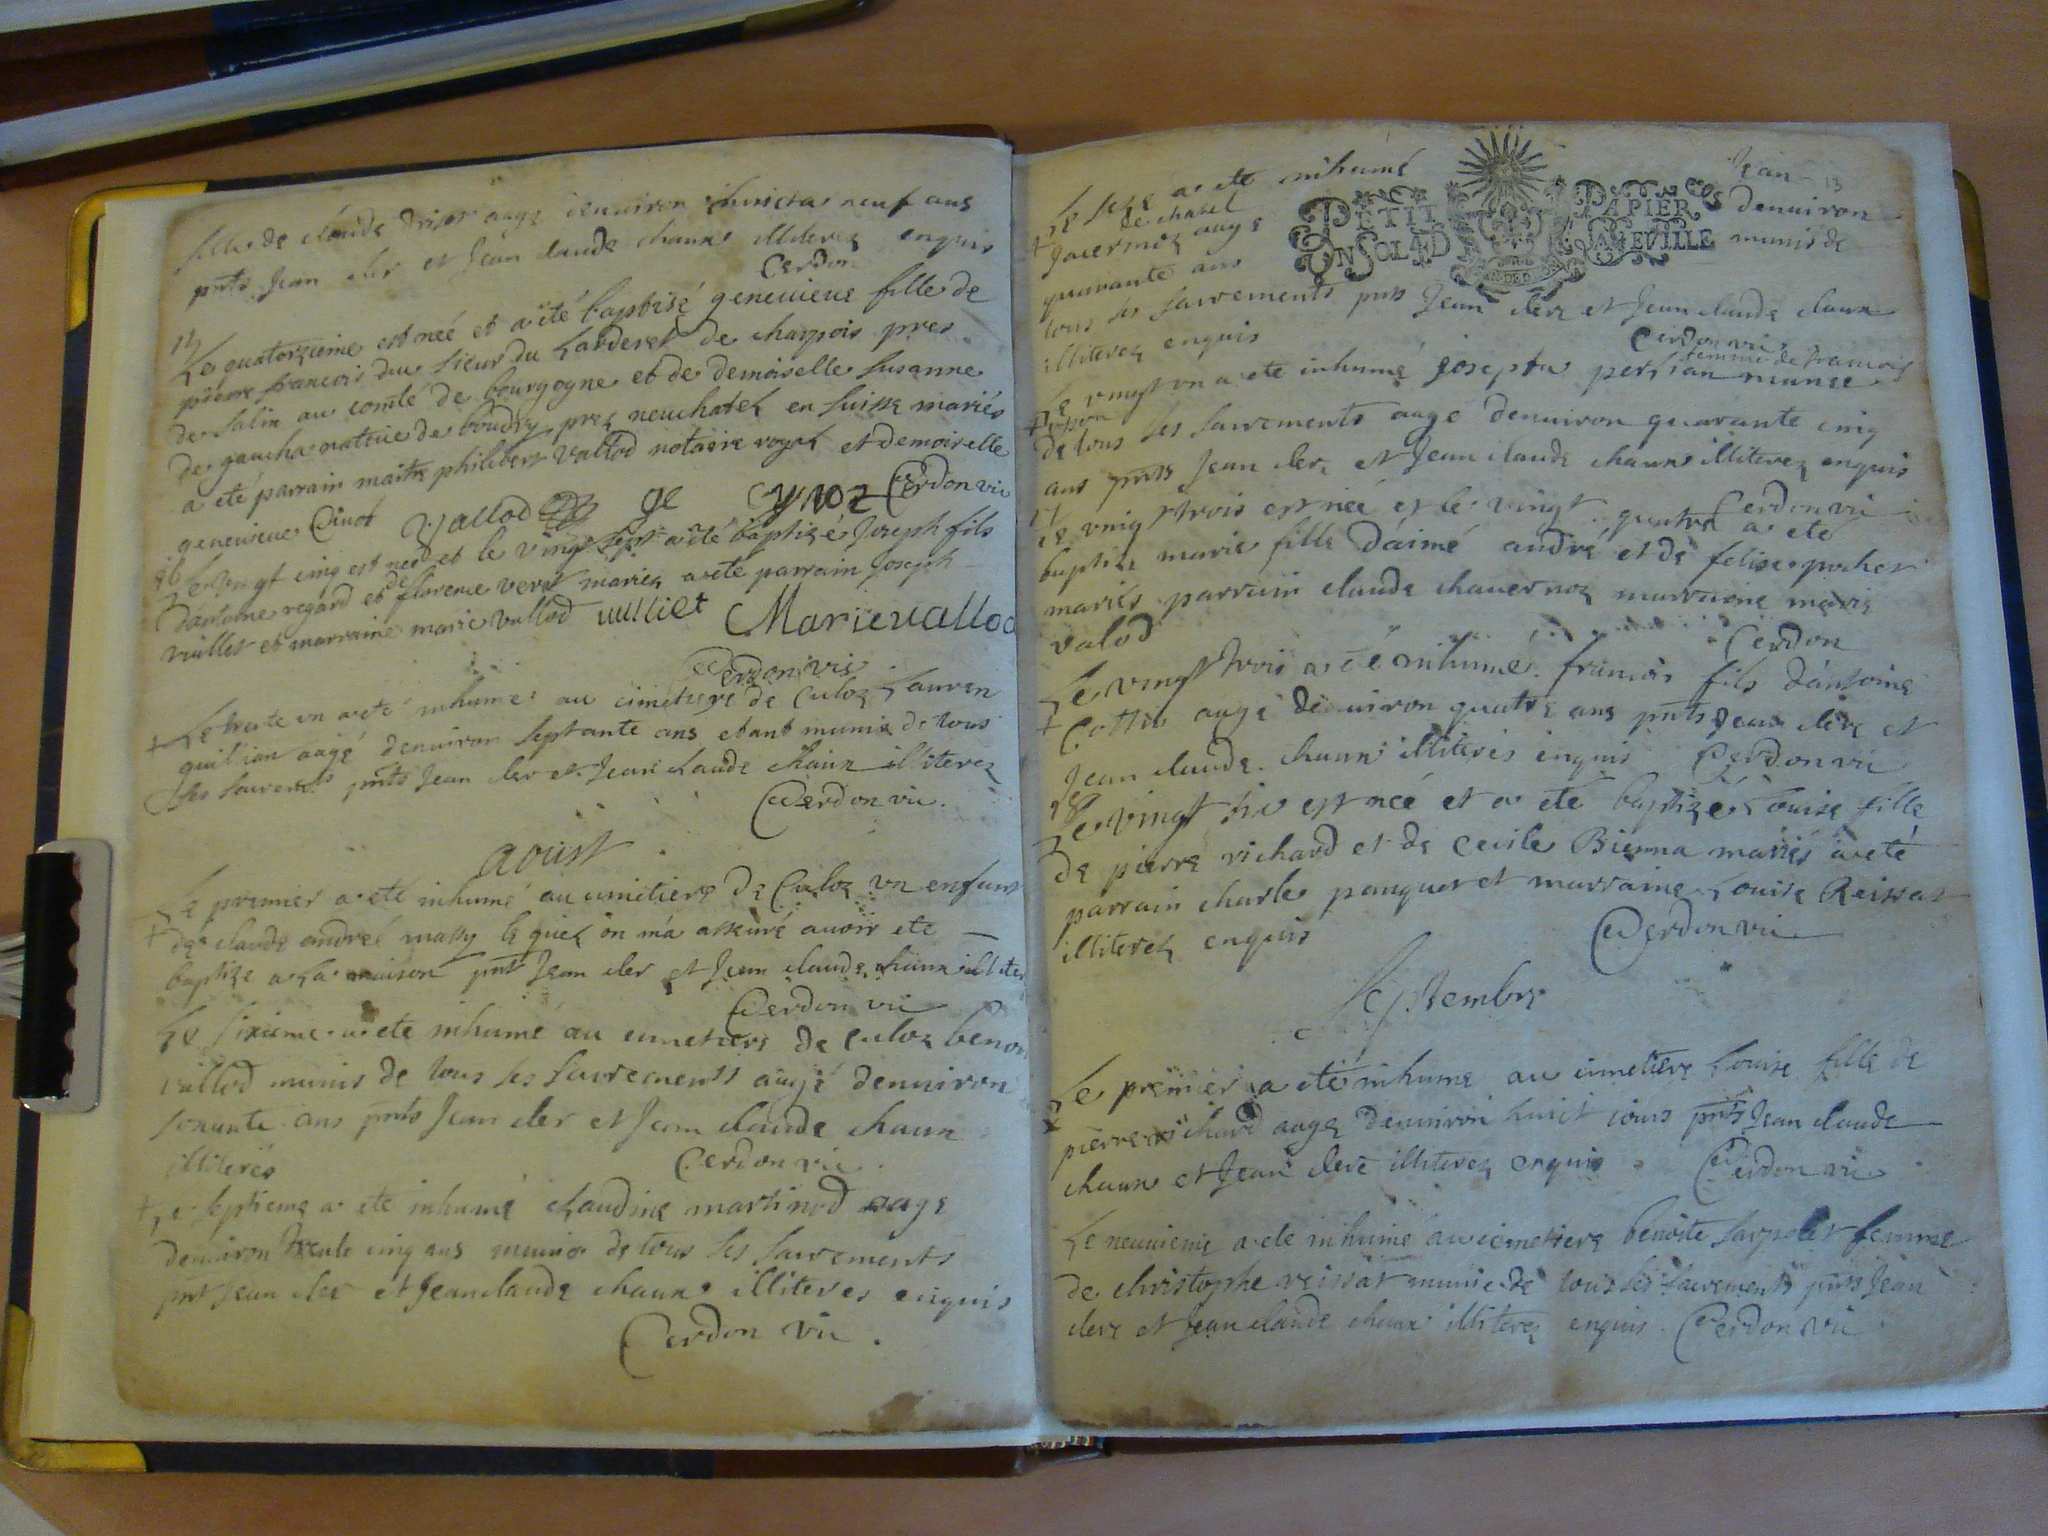 fille de claude aagé denuiron neuf ans
pnts Jean cler et Jean claude chaun illiterez enquis
Cerdon
Le quatorzieme est neé et a été baptisé geneuieue fille de
pierre francois du sieur du Larderet de charpois pres
de salin au comté de bourgogne et de demoiselle Susanne
de gaucha natiue de boudry prez neuchatel en suisse mariés
a eté parrain maitre philibert Vallod notaire royal et demoiselle
geneuieue Vallod ge Cerdon vic
Le vingt cinq est neé et le vingt sept a été baptizé Joseph fils
dantoine regard et de florence veret mariez a ete parrain Joseph
vuillet et marraine marie vallod vulliet Marieuallod
Cerdon vic
Le trente un a eté inhumé au cimetiere de Culoz Lauren
guillian aagé denuiron septante ans etant munis de tous
ses pnts Jean cler et Jean claude chaun illiterez
Cerdon vic.
aoust
Le premier a eté inhumé au cimetiere de Culoz un enfant
de claude andreé massy le quel on má asseuré auoir ete
baptize a la maison pnt Jean cler et Jean claude chaun
Cerdon vic
Le sixieme a ete inhumé au cimetiere de Culoz
vallod munis de tous ses sacrements aagé denuiron
soxante ans pnts Jean cler et Jean claude chaun
illiterés Cerdon vic.
Le septieme a ete inhumé claudine martinod aagé
denuiron trente cinq ans munie de tous ses sacrements
pnt Jean cler et Jean claude chaun illiteres enquis
Cerdon vic.
Le seze a ete inhumé Jean 13
de chatel
aagé denuiron
PETIT PAPIER
UN SOL LAD GEVILLE
quarante ans munis de
tous ses sacrements pnts Jean clerc et Jean claude chaun
illiterez enquis Cerdon vic
femme de francois
Le vingt un a ete inhumé Josepta persian munie
de tous ses sacrements aagé denuiron quarante cinq
ans pnts Jean clerc et Jean claude chaun illiterez enquis
Cerdon vic
Le vingt trois est neé et le vingt quatre a ete
baptizé marie fille d'aimé andré et de felise pochet
mariés parrain claude chauernoz marraine marie
valod Cerdon
Le vingt trois a eté inhumé francois fils dantoine
Cottin aagé denuiron quatre ans pnts Jean clerc et
Jean claude chaun illiterés enquis Cerdon vic
Le vingt six est neé et a eté baptizé Louise fille
de pierre richard et de Cecile Bienna mariés a eté
parrain charle panquet et marraine Louise Reissat
illiterez enquis Cerdon vic
Septembre
Le premier a eté inhume au cimetiere Louise fille de
pierre richard aagé denuiron huict iours pnts Jean claude
chaun et Jean clerc illiterez enquis Cerdon vic
Le neuuieme a ete inhumé au cimetiere benoite sarpolet femme
de christophe reissat munie de tous ses sacrements pnts Jean
clerc et Jean claude chaun illiterez enquis. Cerdon vic